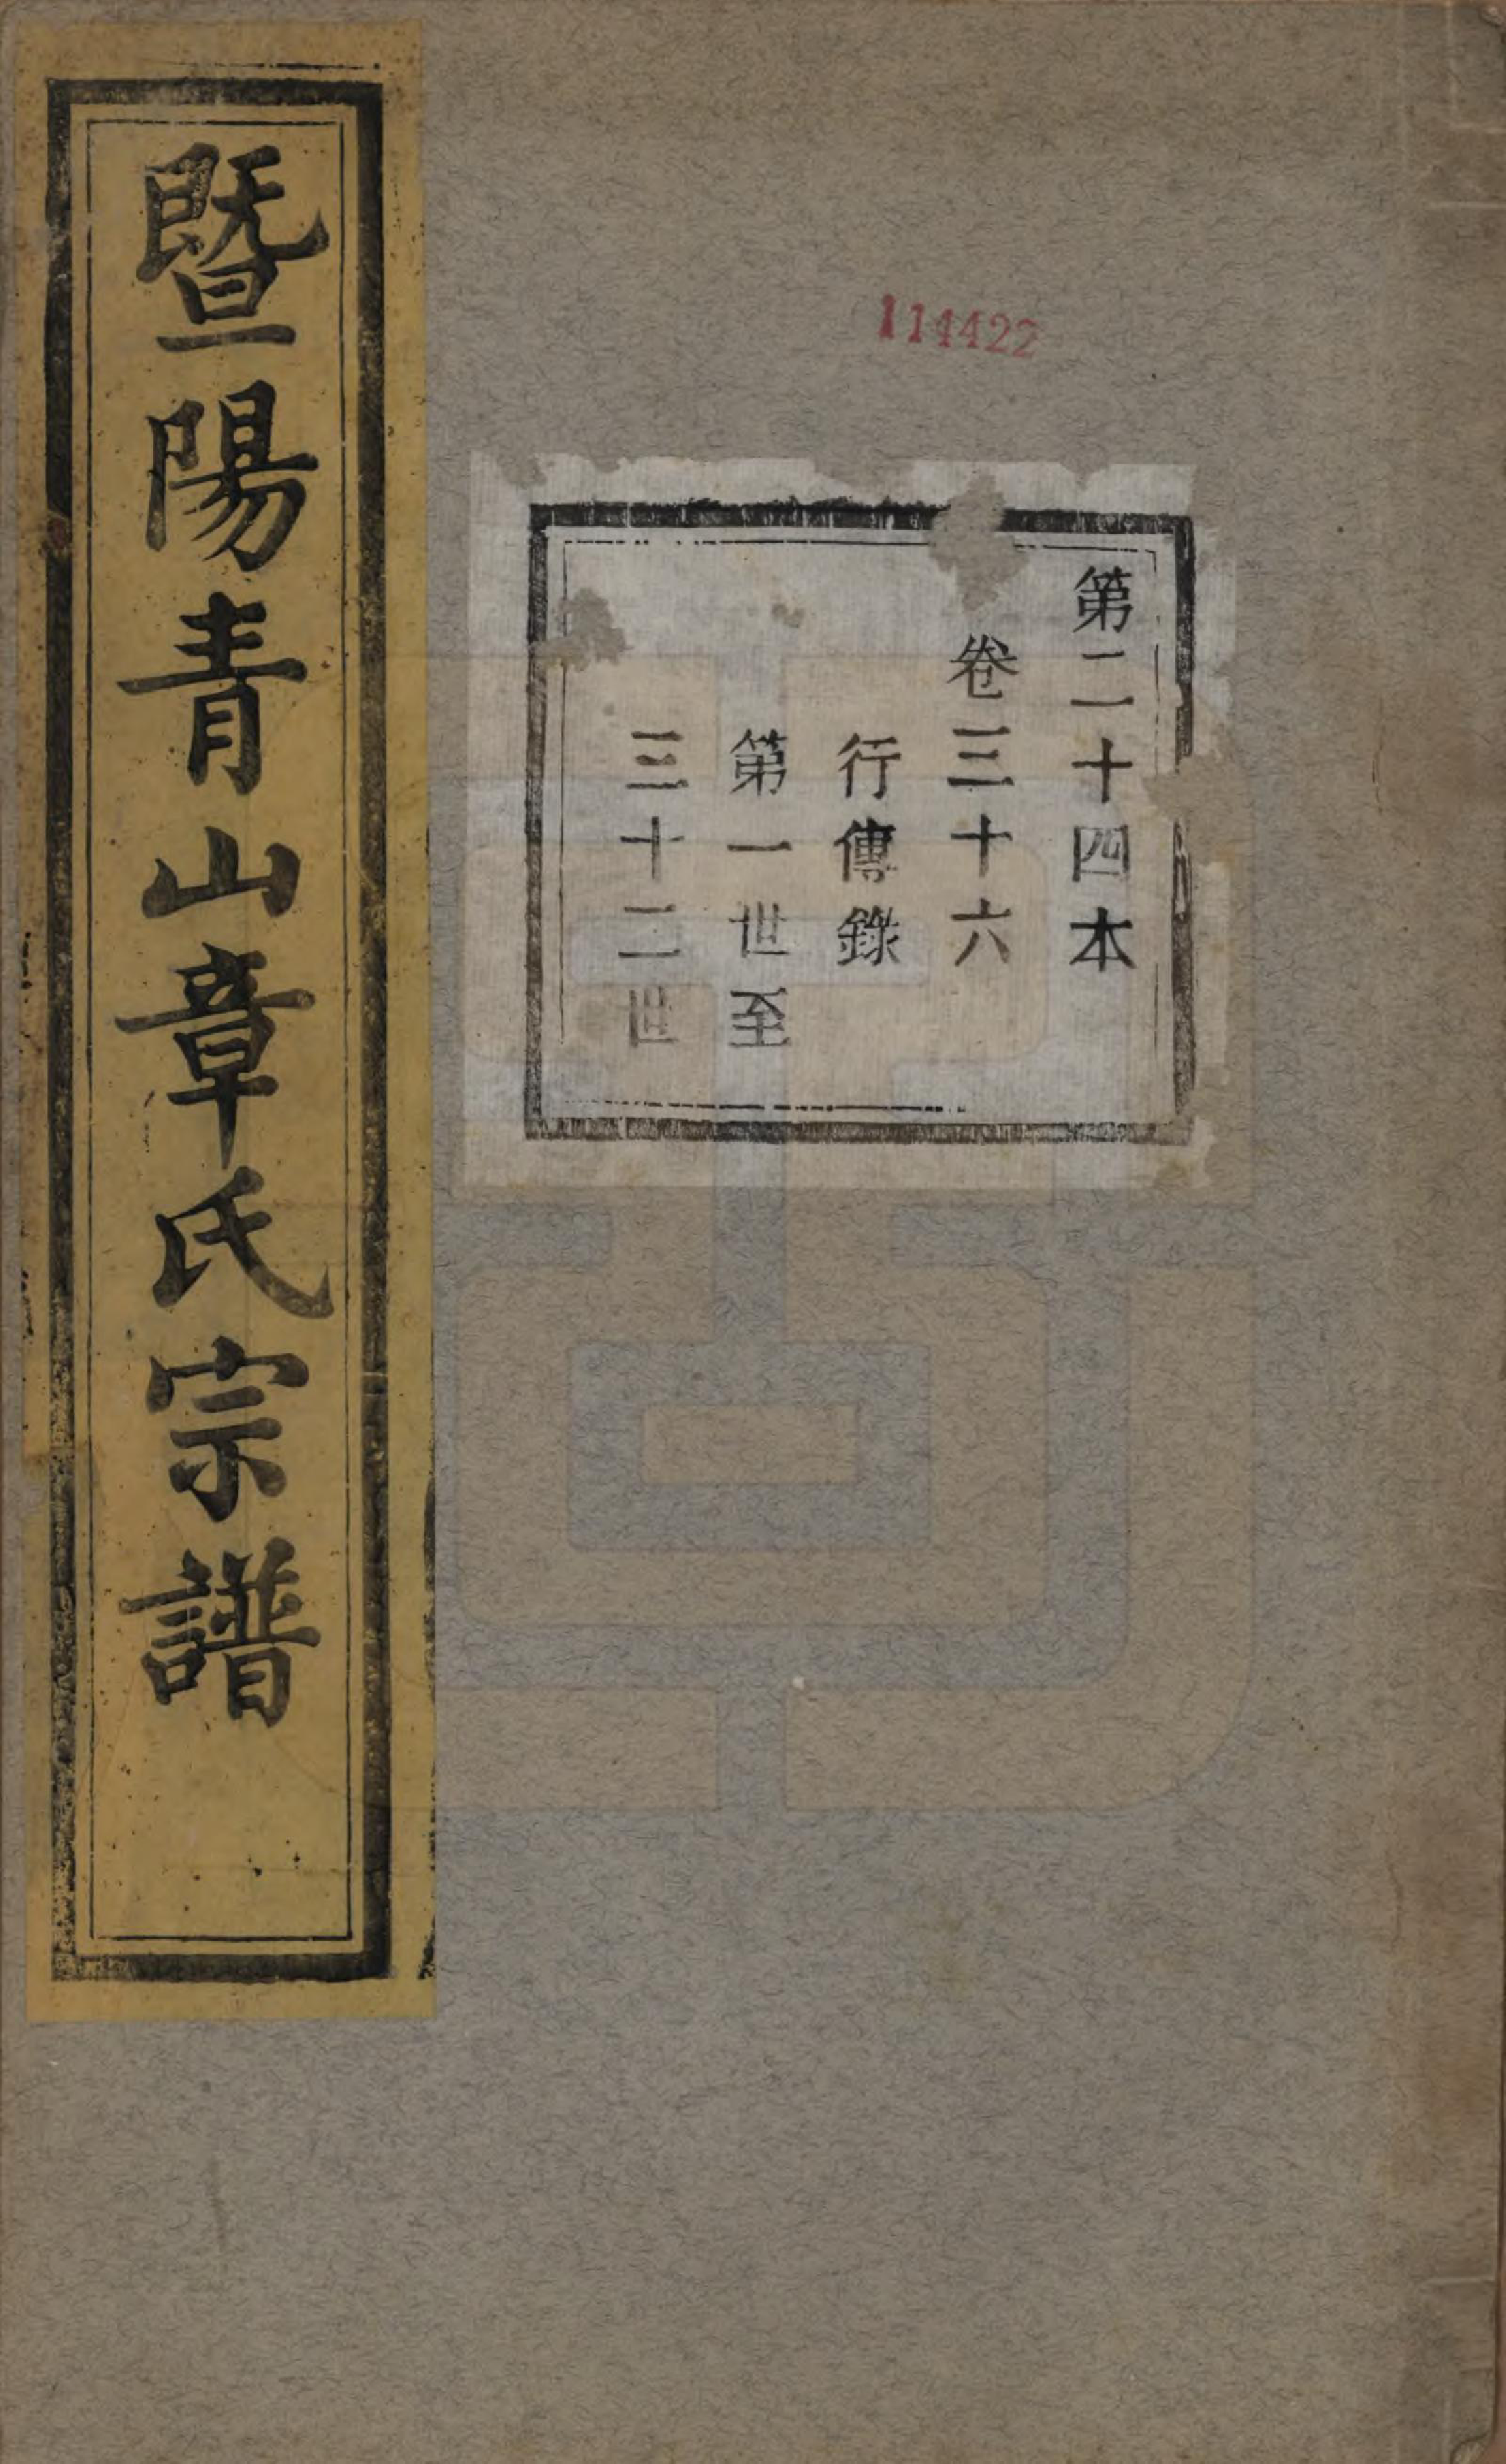 暨陽青山章氏宗譜
114422
第二十四本
卷三十六
行傳錄
第一世至
三十二世